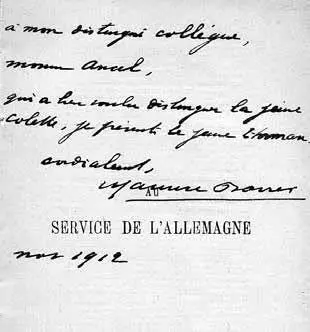 à mon distingué collègue,
monsieur Ancel,
qui a bien voulu distinguer la jeune
Colette, je présente le jeune Ehrmann.
cordialement,
Maurice Barrès
AU
SERVICE DE L'ALLEMAGNE
nov 1912